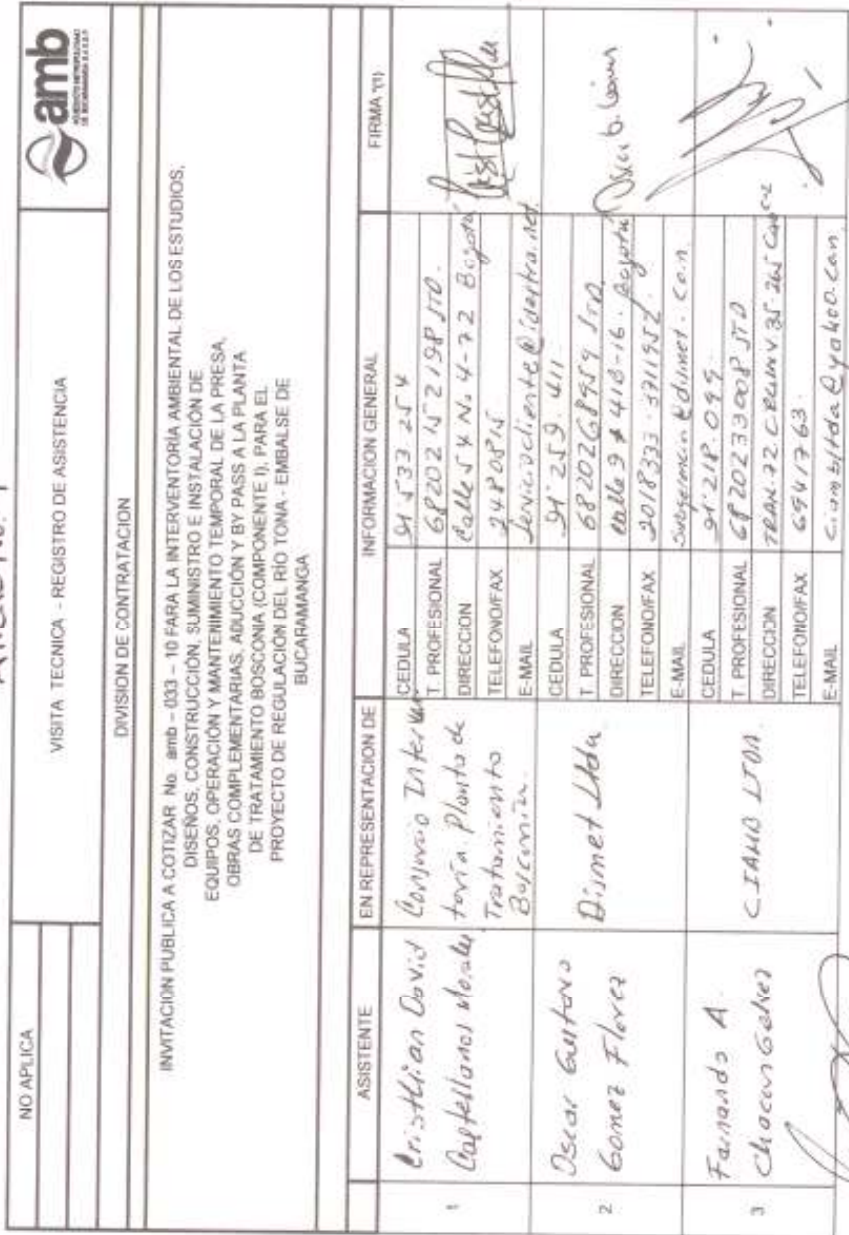 NO APLICA
VISITA TECNICA - REGISTRO DE ASISTENCIA
amb
DIVISION DE CONTRATACION
INVITACION PUBLICA A COTIZAR No. amb - 033 - 10 FARA LA INTERVENTORÍA AMBIENTAL DE LOS ESTUDIOS,
DISEÑOS, CONSTRUCCIÓN, SUMINISTRO E INSTALACIÓN DE
EQUIPOS, OPERACIÓN Y MANTENIMIENTO TEMPORAL DE LA PRESA,
OBRAS COMPLEMENTARIAS, ADUCCIÓN Y BY PASS A LA PLANTA
DE TRATAMIENTO BOSCONIA (COMPONENTE I), PARA EL
PROYECTO DE REGULACIÓN DEL RÍO TONA - EMBALSE DE
BUCARAMANGA
ASISTENTE
EN REPRESENTACION DE
INFORMACION GENERAL
FIRMA *(1)
1
Cristhian David
Castellanos Morales
Consorcio Interven
toría Planta de
Tratamiento
Bosconia.
CEDULA 91 533 254
T. PROFESIONAL 68202152198 STD.
DIRECCION Calle 54 No. 4-72 Bogotá
TELEFONO/FAX 2480815
E-MAIL
2
Oscar Gustavo
Gomez Florez
Dismet Ltda.
CEDULA 91'259.411
T. PROFESIONAL 6820268959 STD.
DIRECCION calle 9 # 41B-16. Bogotá
TELEFONO/FAX 2018333 - 3711952.
E-MAIL
3
Fernando A.
Chacon Galvez
CIAMB LTDA.
CEDULA 91'218.099.
T. PROFESIONAL 6820233008 STD
DIRECCION
TELEFONO/FAX 6941763.
E-MAIL ciambltda@yahoo.com